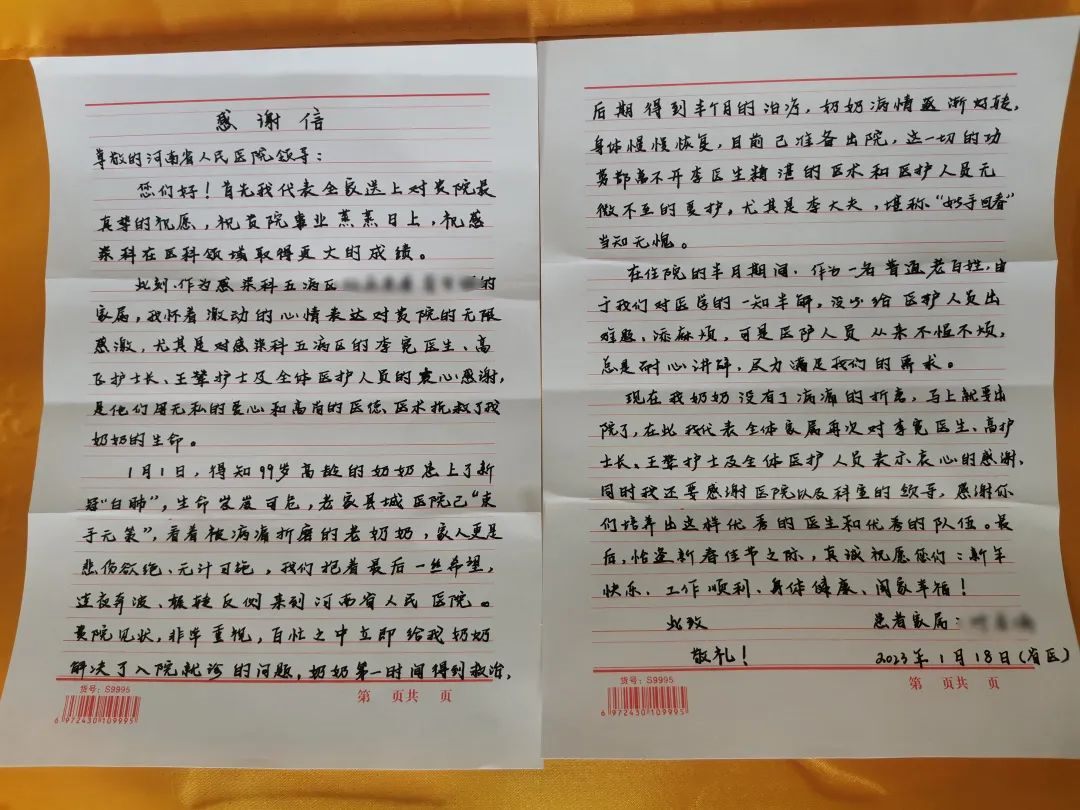 感谢信
尊敬的河南省人民医院领导：
您们好！首先我代表全家送上对贵院最
真挚的祝愿，祝贵院事业蒸蒸日上，祝感
染科在医科领域取得更大的成绩。
此刻，作为感染科五病区 的
家属，我怀着激动的心情表达对贵院的无限
感激，尤其是对感染科五病区的李宽医生、高
飞护士长、王辇护士及全体医护人员的衷心感谢，
是他们用无私的爱心和高尚的医德、医术抢救了我
奶奶的生命。
1月1日，得知99岁高龄的奶奶患上了新
冠“白肺”，生命岌岌可危，老家县城医院已“束
手无策”，看着被病痛折磨的老奶奶，家人更是
悲伤欲绝、无计可施，我们抱着最后一丝希望，
连夜奔波、辗转反侧来到河南省人民医院。
贵院见状，非常重视，百忙之中立即给我奶奶
解决了入院就诊的问题，奶奶第一时间得到救治，
货号：S9995
6 972430 109995
第 页共 页
后期得到半个月的治疗，奶奶病情逐渐好转，
身体慢慢恢复，目前已准备出院，这一切的功
劳都离不开李医生精湛的医术和医护人员无
微不至的爱护，尤其是李大夫，堪称“妙手回春”
当知无愧。
在住院的半月期间，作为一名普通老百姓，由
于我们对医学的一知半解，没少给医护人员出
难题、添麻烦，可是医护人员从来不愠不烦，
总是耐心讲解，尽力满足我们的需求。
现在我奶奶没有了病痛的折磨，马上就要出
院了，在此我代表全体家属再次对李宽医生、高护
士长、王辇护士及全体医护人员表示衷心的感谢，
同时我还要感谢医院以及科室的领导，感谢你
们培养出这样优秀的医生和优秀的队伍。最
后，恰逢新春佳节之际，真诚祝愿您们：新年
快乐、工作顺利、身体健康、阖家幸福！
此致 患者家属：
敬礼！ 2023年1月18日（省医）
货号：S9995
6 972430 109995
第 页共 页